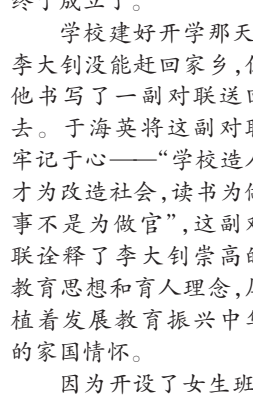 终于成立了。
学校建好开学那天
李大钊没能赶回家乡,
他书写了一副对联送
去。于海英将这副对
牢记于心——“学校造
才为改造社会,读书为
事不是为做官”,这副
联诠释了李大钊崇高
教育思想和育人理念,
植着发展教育振兴中
的家国情怀。
因为开设了女生班